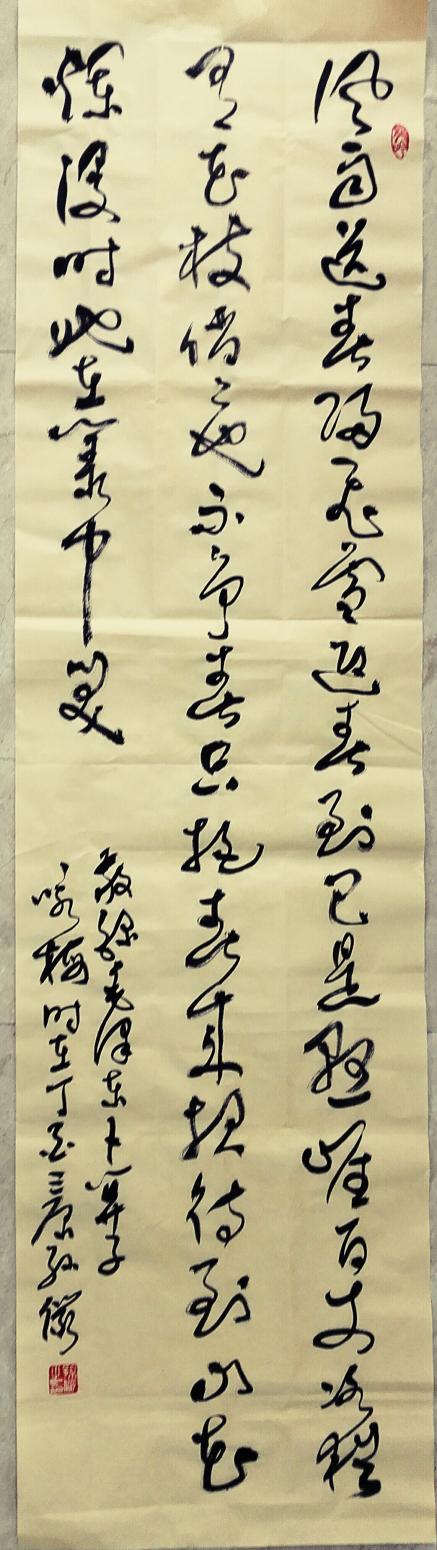 风雨送春归飞雪迎春到已是悬崖百丈冰犹
有花枝俏俏也不争春只把春来报待到山花
烂漫时她在丛中笑
敬录毛泽东卜算子
咏梅时在丁酉三原